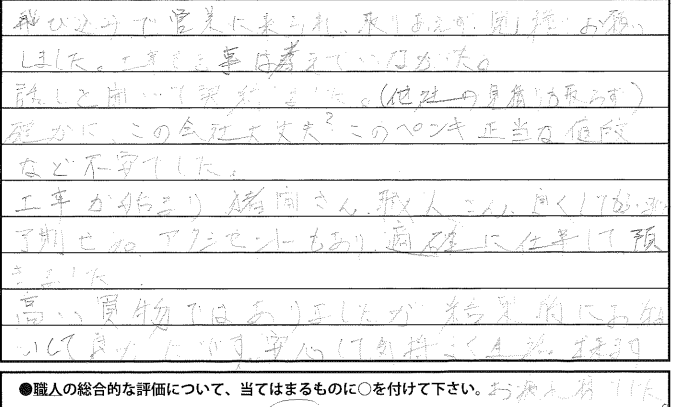 飛び込みで営業に来られ、取りあえず見積お願い
しました。工事する事は考えていなかった。
話しを聞いて契約しました。(他社の見積は取らず)
確かに、この会社大丈夫?このペンキ正当な値段
など不安でした。
工事が始まり さん、職人さん、良くして
アクシデントもあり、的確に仕事して頂
きました。
高い買物ではありましたが結果的にお願
いして良かったです。安心して気持よく生活出来ます
●職人の総合的な評価について、当てはまるものに○を付けて下さい。お疲れ様でした